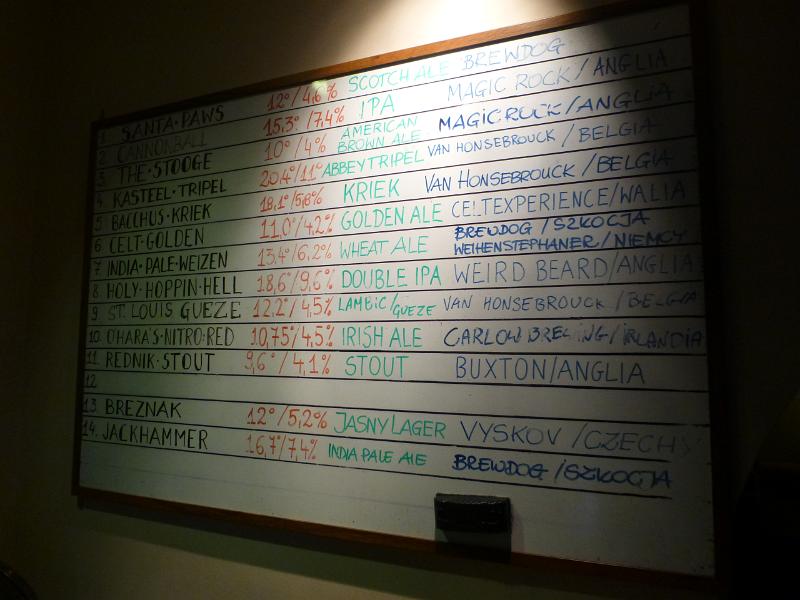 1 SANTA·PAWS 12°/4,6% SCOTCH ALE BREWDOG
2 CANNONBALL 15,3°/7,4% IPA MAGIC ROCK/ANGLIA
3 THE·STOOGE 10°/4% AMERICAN BROWN ALE MAGIC ROCK/ANGLIA
4 KASTEEL·TRIPEL 20,4°/11° ABBEY TRIPEL VAN HONSEBROUCK/BELGIA
5 BACCHUS·KRIEK 18,1°/5,8% KRIEK VAN HONSEBROUCK/BELGIA
6 CELT·GOLDEN 11,0°/4,2% GOLDEN ALE CELTEXPERIENCE/WALIA
7 INDIA·PALE·WEIZEN 13,4°/6,2% WHEAT ALE BREWDOG/SZKOCJA WEIHENSTEPHANER/NIEMCY
8 HOLY·HOPPIN·HELL 18,6°/9,6% DOUBLE IPA WEIRD BEARD/ANGLIA
9 ST. LOUIS GUEZE 12,2°/4,5% LAMBIC/GUEZE VAN HONSEBROUCK/BELGIA
10. O'HARA'S·NITRO·RED 10,75°/4,5% IRISH ALE CARLOW /IRLANDIA
11. REDNIK·STOUT 9,6°/4,1% STOUT BUXTON/ANGLIA
12
13. BREZNAK 12°/5,2% JASNY LAGER VYSKOV/CZECHY
14. JACKHAMMER 16,7°/7,4% INDIA PALE ALE BREWDOG/SZKOCJA